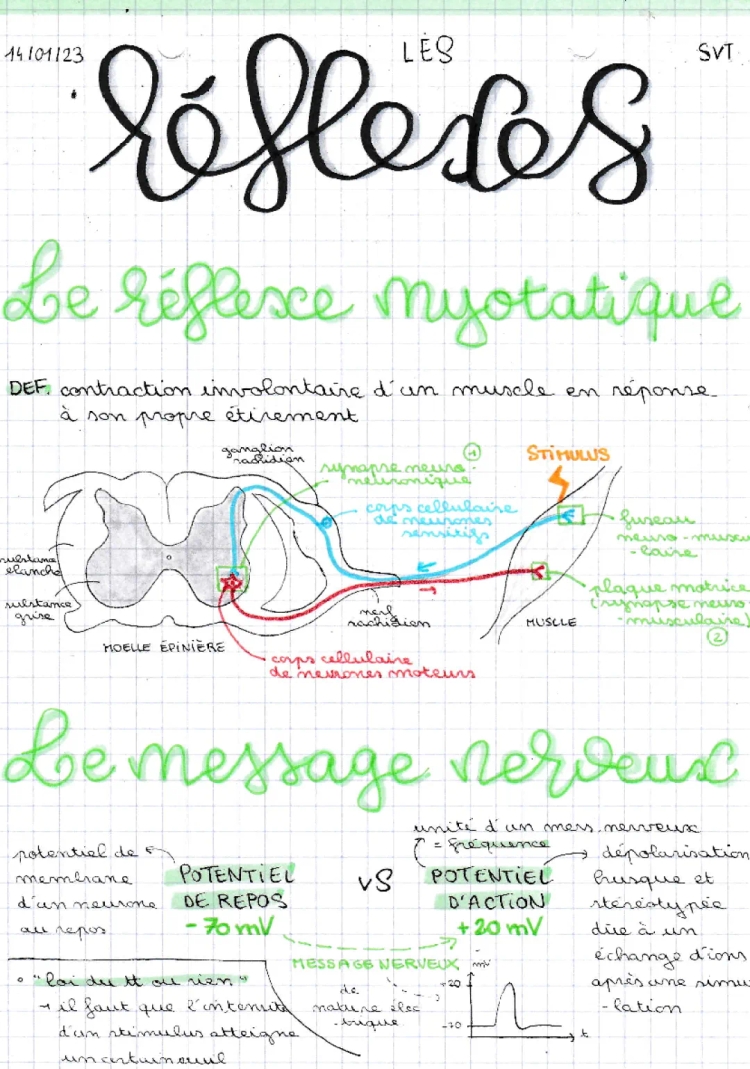 14/01/23
LES
SVT
réflexes
Le réflexe myotatique
DEF. contraction involontaire d'un muscle en réponse
à son propre étirement
ganglion
rachidien
synapse neuro-
neuronique
1
STIMULUS
corps cellulaire
de neurones
sensitifs
fuseau
neuro-muscu
-laire
substance
blanche
substance
grise
plaque motrice
(synapse neuro
-musculaire)
2
nerf
rachidien
MUSCLE
MOELLE ÉPINIÈRE
corps cellulaire
de neurones moteurs
Le message nerveux
unité d'un mess. nerveux
= fréquence
potentiel de
membrane
d'un neurone
au repos
POTENTIEL
DE REPOS
- 70 mV
VS
POTENTIEL
D'ACTION
+20 mV
dépolarisation
brusque et
stéréotypée
dûe à un
échange d'ions
après une simu
-lation
MESSAGE NERVEUX
de
nature élec
-trique
mV
+20
-70
t
"loi du tt ou rien"
→ il faut que l'intensité
d'un stimulus atteigne
un certain seuil